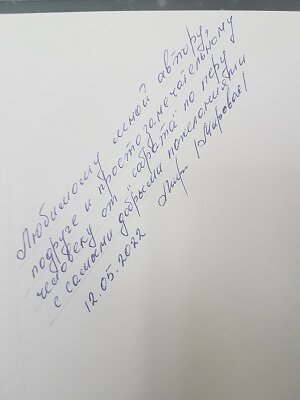 Любимому мной автору,
подруге и просто замечательному
человеку от "собрата" по перу
с самыми добрыми пожеланиями
12.05.2022